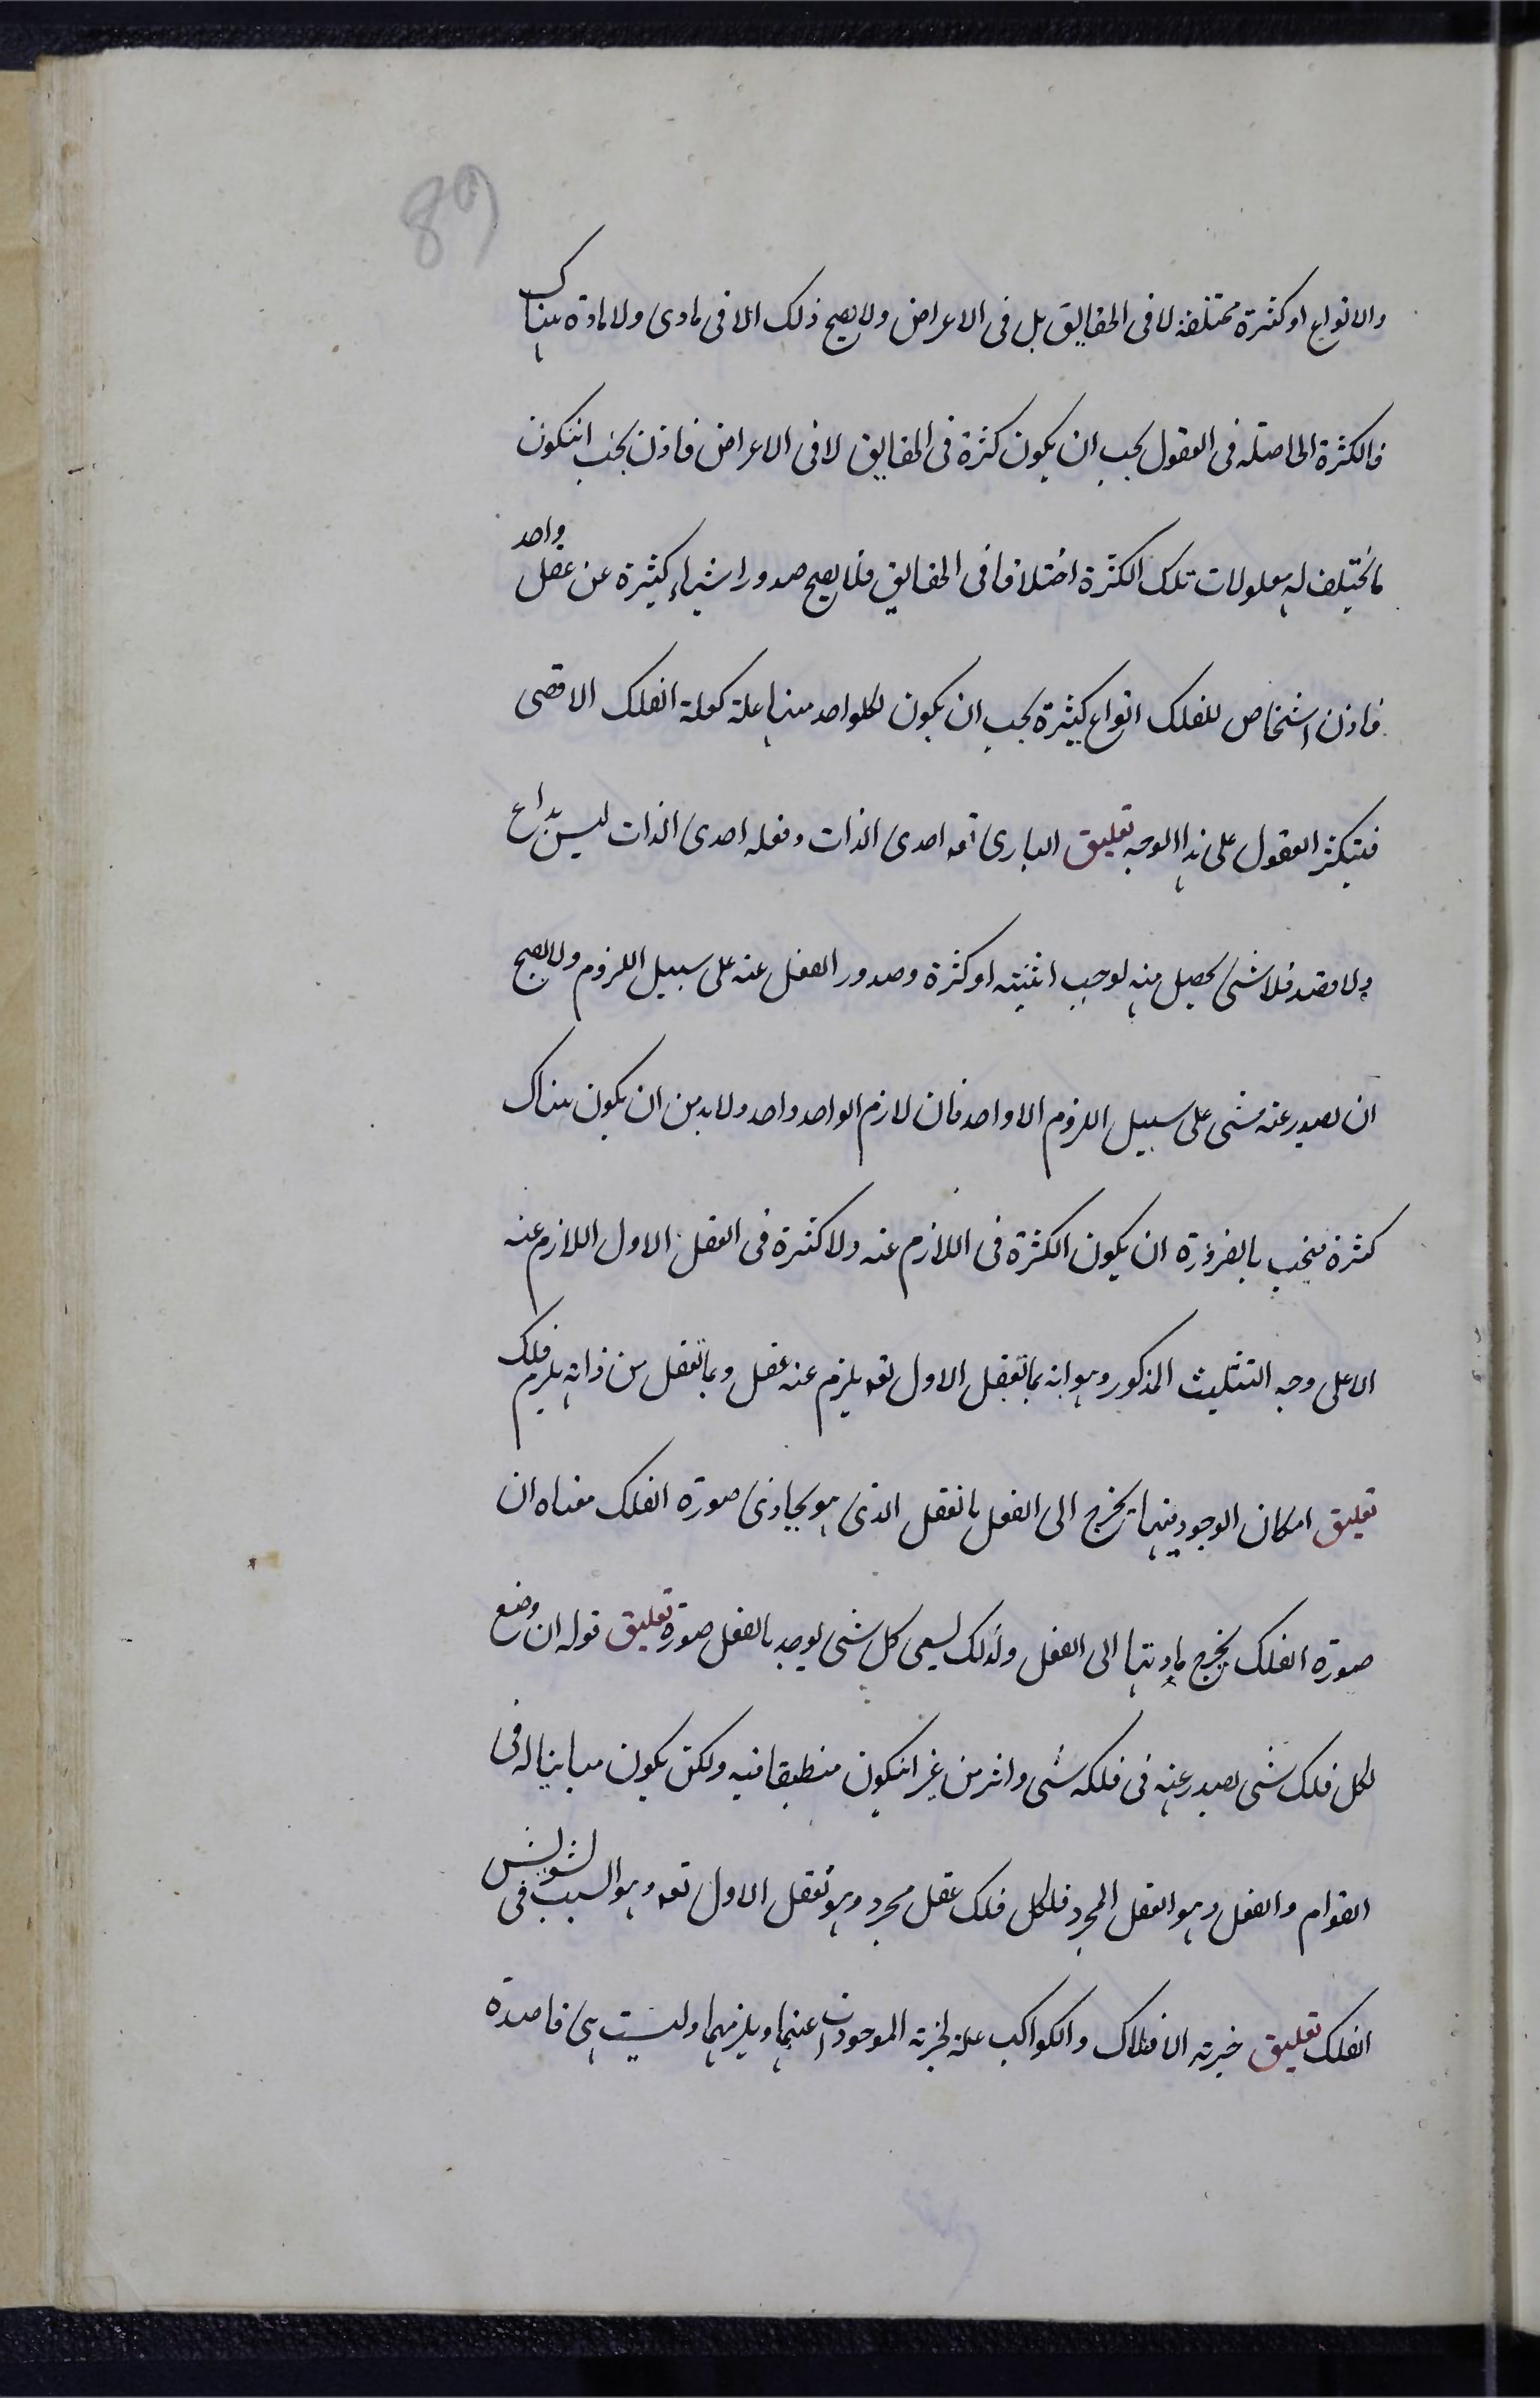 89
والانواع او كثرة مختلفة لا فى الحقايق بل فى الاعراض ولا يصح ذلك الا فى مادى ولا مادة هناك
فالكثرة الحاصلة فى العقول يجب ان يكون كثرة فى الحقايق لا فى الاعراض فاذن يجب انتكون
ما يختلف به معلولات تلك الكثرة اختلافا فى الحقايق فلا يصح صدور اشياء كثيرة عن عقل واحد
فاذن اشخاص للفلك انواع كثيرة يجب ان يكون لكلواحد منها علة كعلة الفلك الاقصى
فيتكثر العقول على هذا الوجه تعليق البارى تعه احدى الذات وفعله احدى الذات ليس بداع
ولا قصد فلا شئ يحصل منه يوجب اثنينية او كثرة وصدور الفعل عنه على سبيل اللزوم ولا يصح
ان يصدر عنه شى على سبيل اللزوم الا واحد فان لازم الواحد واحد ولا بد من ان يكون هناك
كثرة فيجب بالضرورة ان يكون الكثرة فى اللازم عنه ولا كثرة فى العقل الاول اللازم عنه
الا على وجه التثليث المذكور وهو انه بما تعقل الاول تعه يلزم عنه عقل وبما تعقل من ذاته يلزم فلك
تعليق امكان الوجود فيها يخرج الى الفعل بالعقل الذى هو يحاذى صورة الفلك معناه ان
صورة الفلك يخرج مادتها الى الفعل ولذلك يسمى كل شى يوجد بالفعل صورة تعليق قوله ان وضع
لكل فلك شى يصدر عنه فى فلكه شى واثر من غير انيكون منطبقا فيه ولكن يكون مباينا له فى
القوام والفعل وهو العقل المجرد فلكل فلك عقل مجرد وهو تعقل الاول تعه وهو السبب فى تشويش
الفلك تعليق خيرية الافلاك والكواكب علة لخيرية الموجودات عنها ويلزمها وليست هى قاصدة